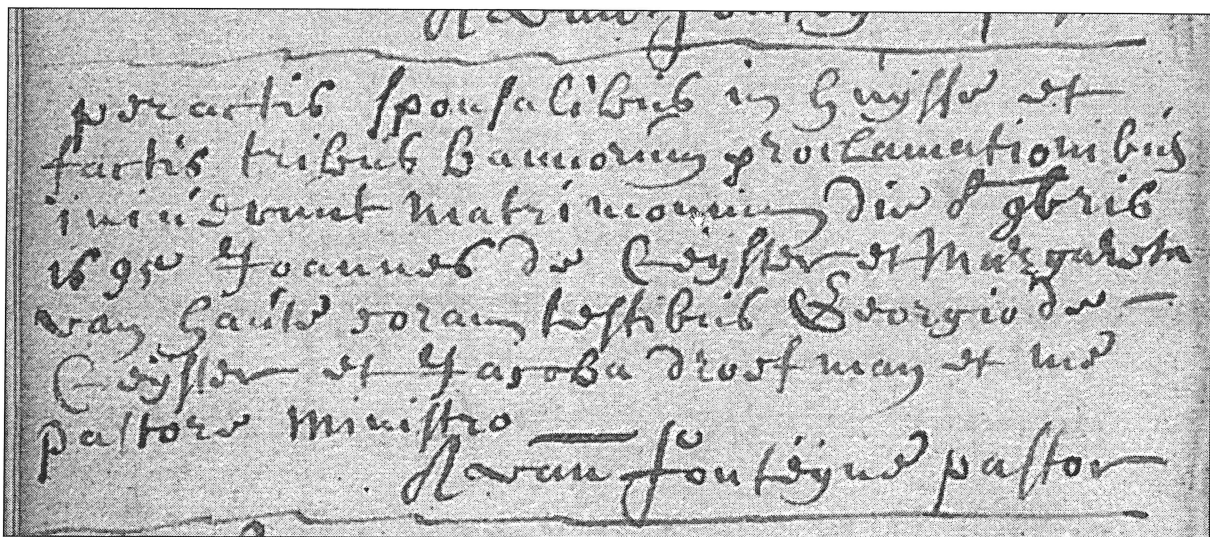 van fonteyne p
peractis sponsalibus in huysse et
factis tribus bannorum proclamationibus
inierunt matrimonium die 8 9bris
1695 Joannes de Ceyster et Margareta
van haute coram testibus Georgio de
Ceyster et Jacoba droesman et me
pastore ministro
A van fonteyne pastor